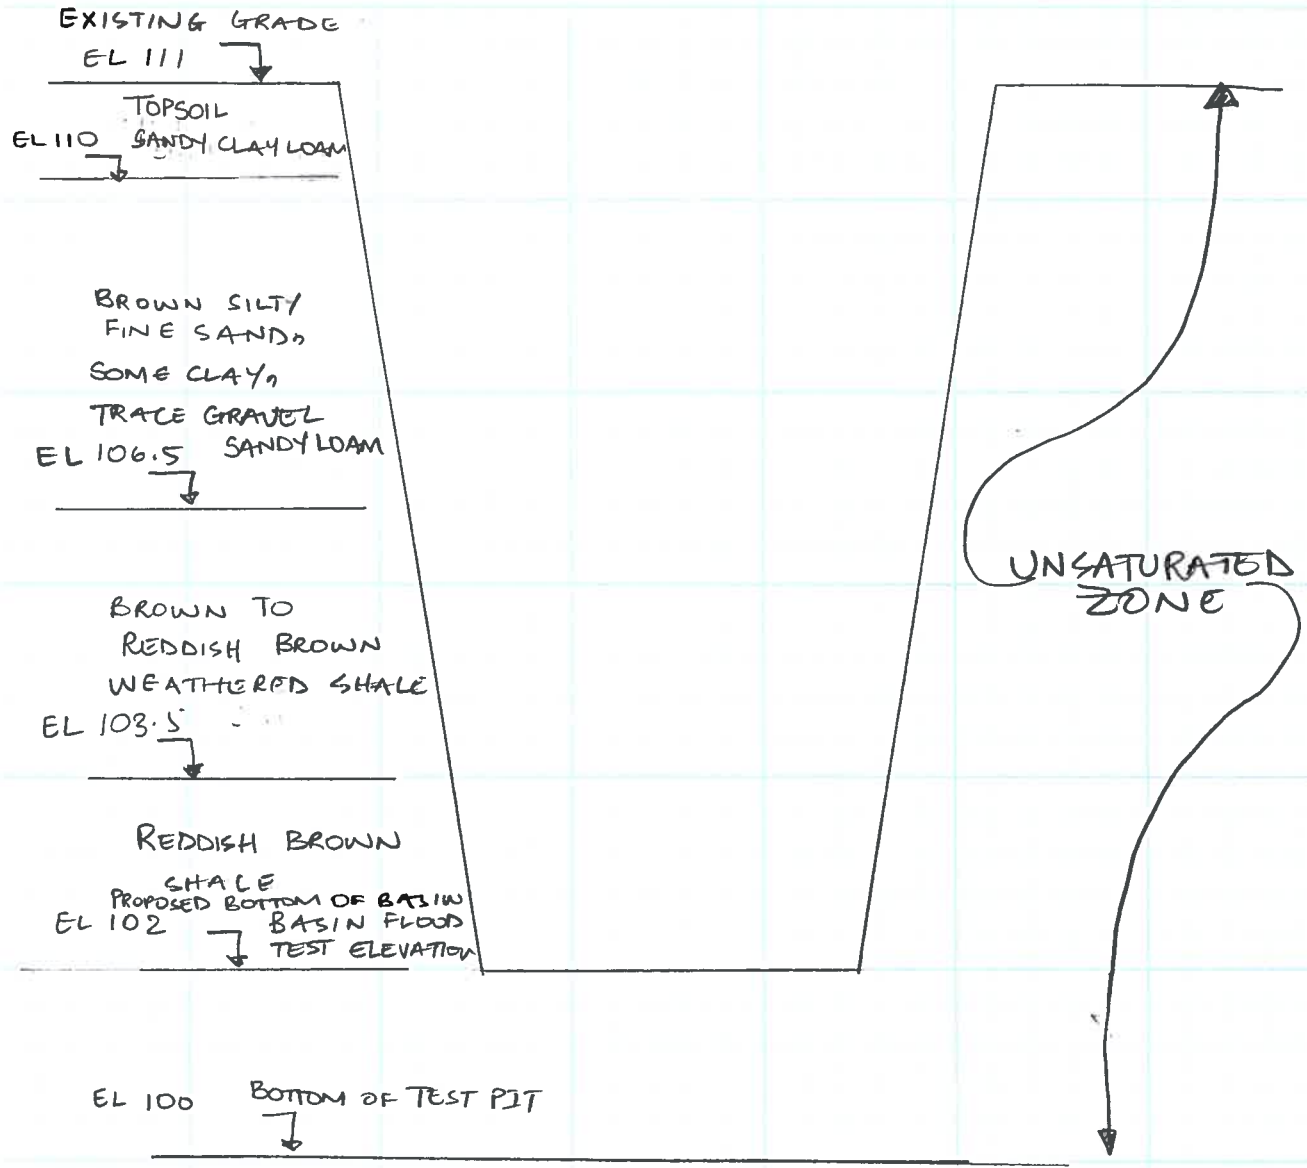 EXISTING GRADE
EL 111
TOPSOIL
EL 110 SANDY CLAY LOAM
BROWN SILTY
FINE SAND,
SOME CLAY,
TRACE GRAVEL
EL 106.5 SANDY LOAM
UNSATURATED
ZONE
BROWN TO
REDDISH BROWN
WEATHERED SHALE
EL 103.5
REDDISH BROWN
SHALE
PROPOSED BOTTOM OF BASIN
EL 102 BASIN FLOOD
TEST ELEVATION
EL 100 BOTTOM OF TEST PIT